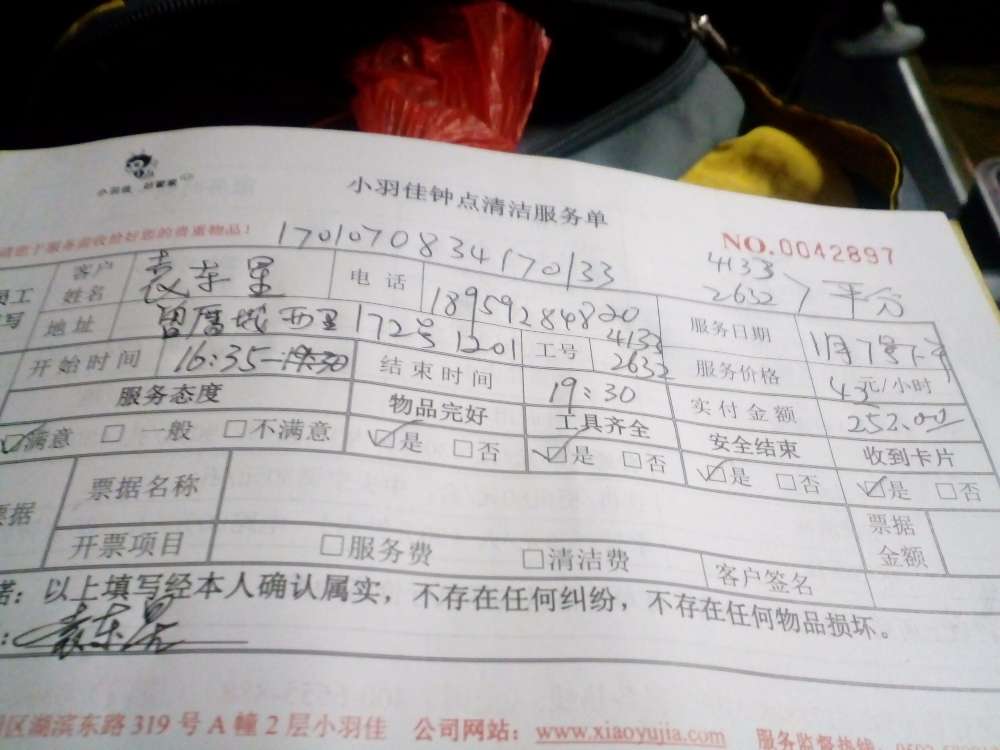 小羽佳
小羽佳钟点清洁服务单
服务前收拾好您的贵重物品!
NO.0042897
170107083417013​3
4133
2632 > 平分
客户姓名 袁东星 电话 18959284820 服务日期 1月7号下午
地址 曾厝垵西里172号1201 工号 4133 2632 服务价格 43元/小时
开始时间 16:35-19:30 结束时间 19:30 实付金额 252.00
服务态度 物品完好 工具齐全 安全结束 收到卡片
☑满意 □一般 □不满意 ☑是 □否 ☑是 □否 ☑是 □否 ☑是 □否
票据名称 票据金额
开票项目 □服务费 □清洁费 客户签名
诺:以上填写经本人确认属实,不存在任何纠纷,不存在任何物品损坏。
: 袁东星
区湖滨东路319号A幢2层小羽佳 公司网站:www.xiaoyujia.com 服务监督热线